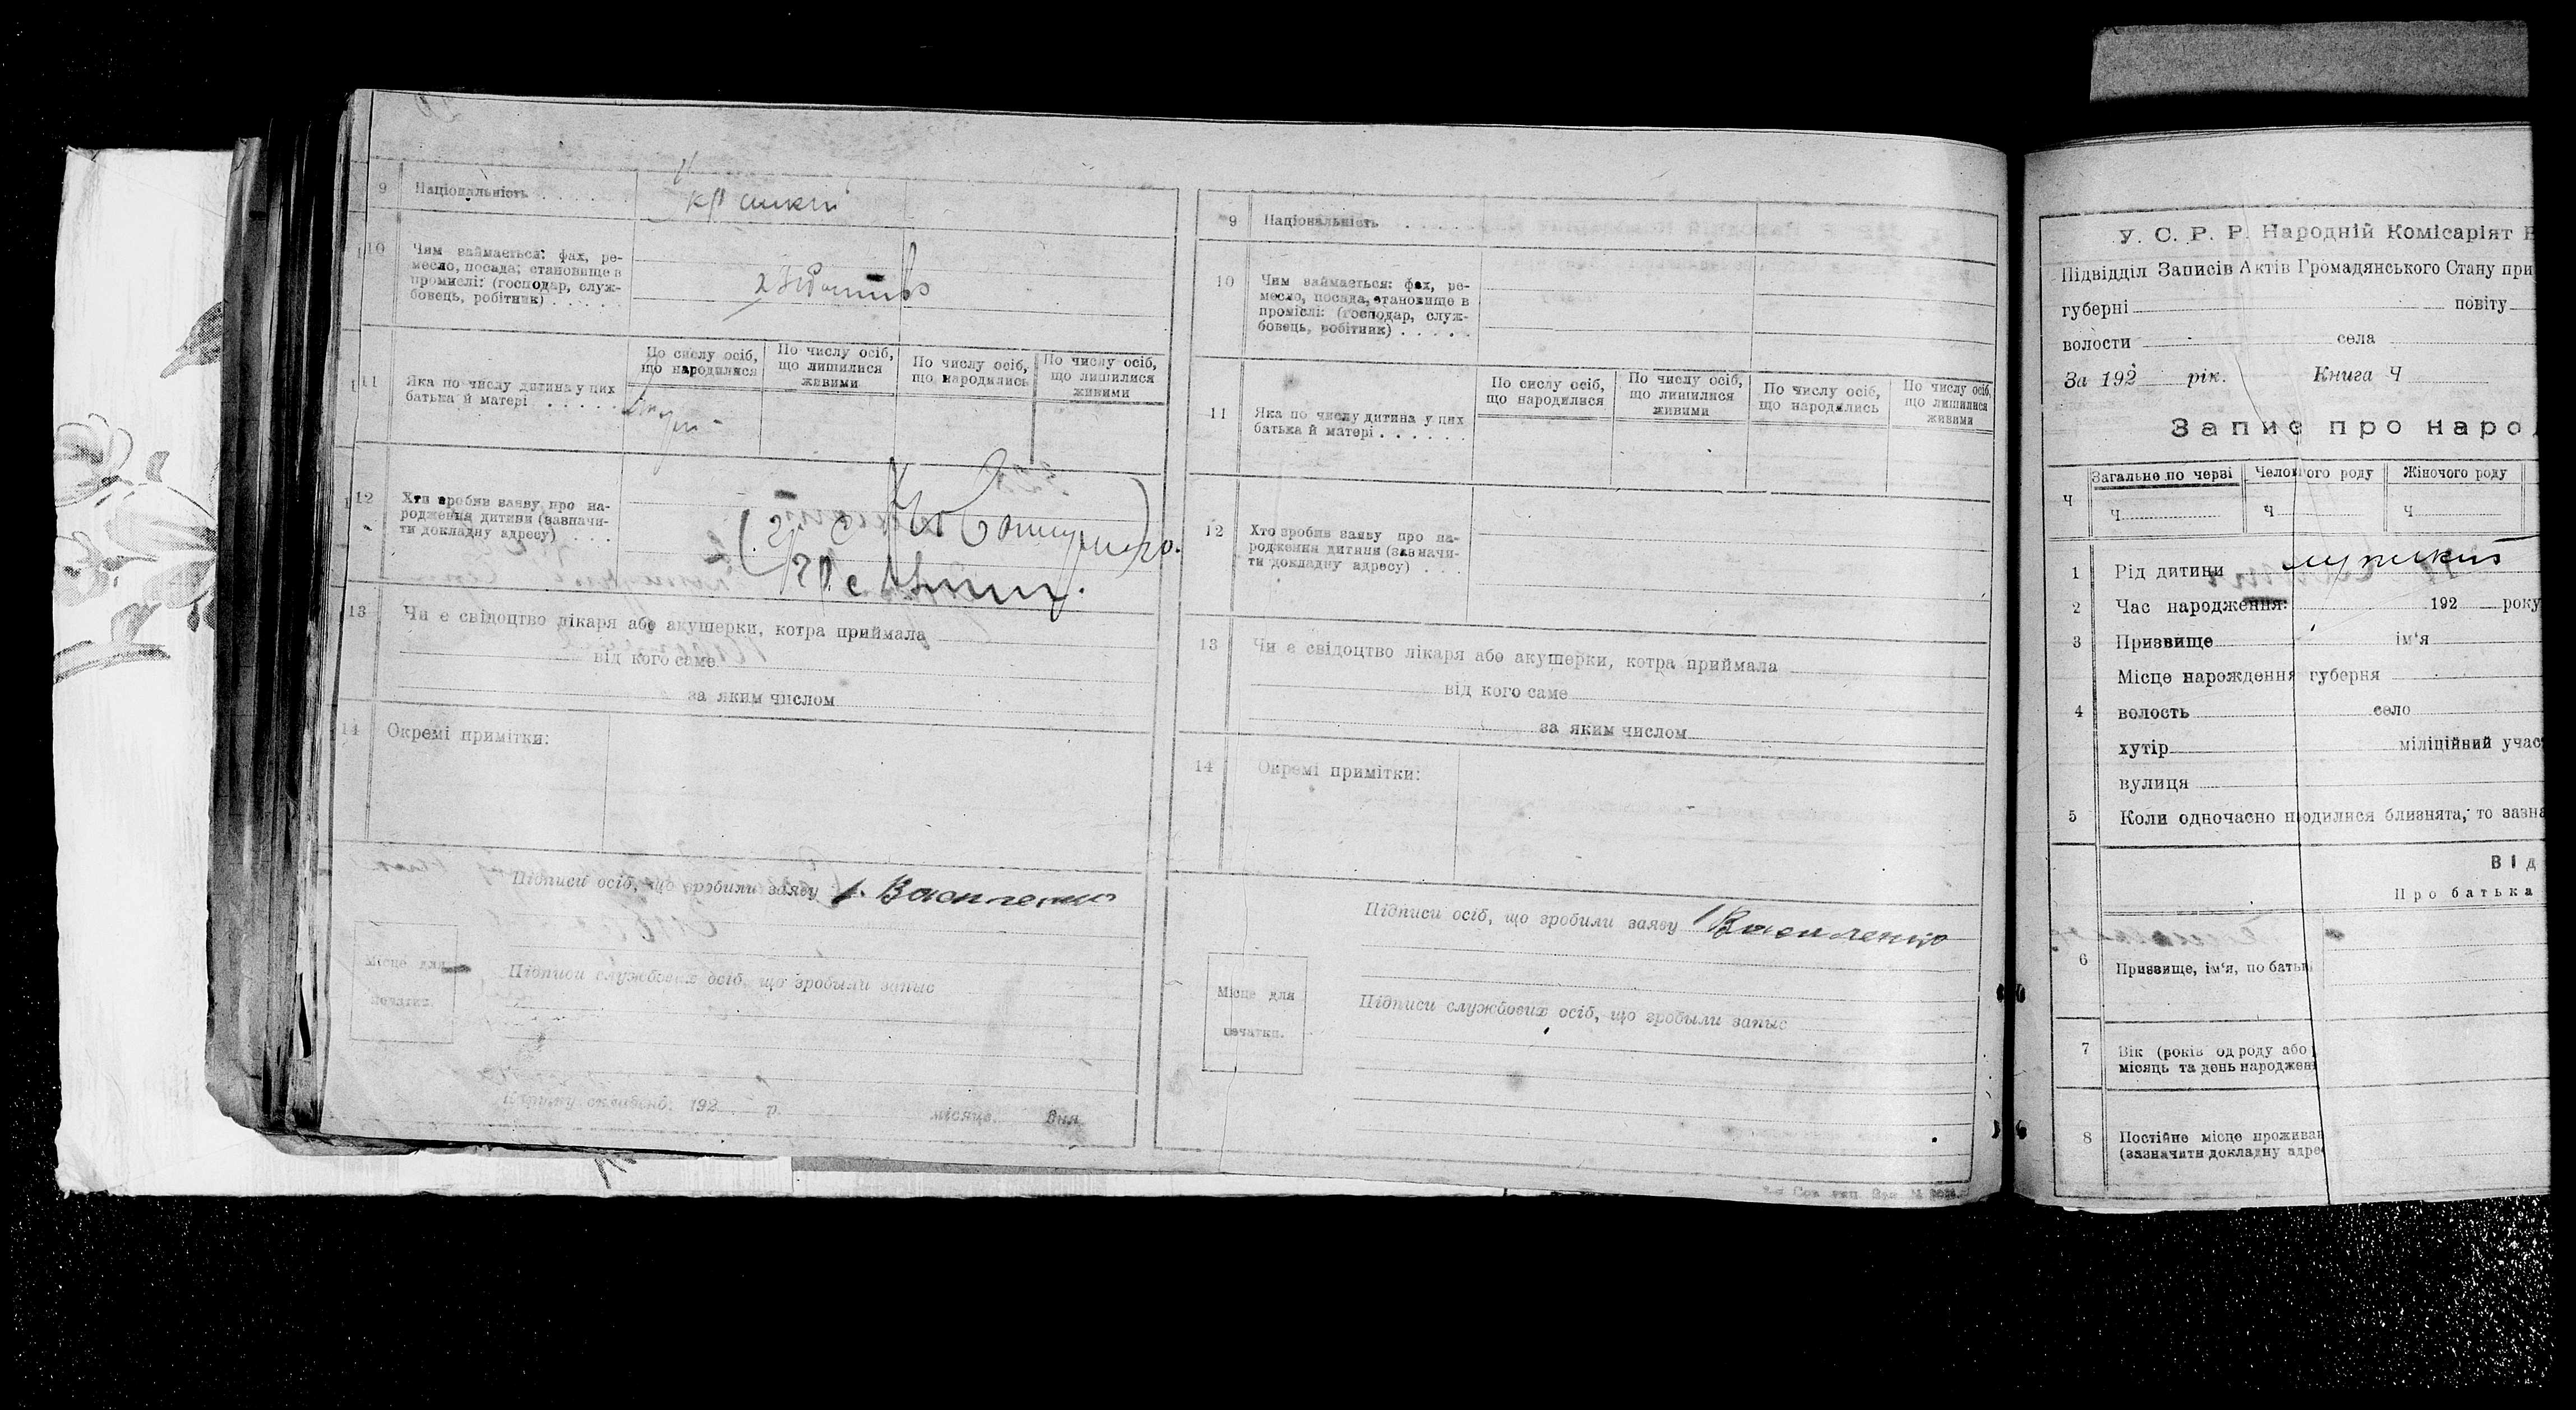 9 Національність
10 Чим займається: фах, ре-
месло, посада, становище в
промислі: (господар, служ-
бовець, робітник)
По сислу осіб,
що народилися
По числу осіб,
що лишилися
живими
По числу осіб,
що народились
По числу осіб,
що лишилися
живими
11 Яка по числу дитина у цих
батька й матері
12 Хто зробив заяву про на-
родження дитини (зазначи-
ти докладну адресу)
13 Чи є свідоцтво лікаря або акушерки, котра приймала
від кого саме
за яким числом
14 Окремі примітки:
Підписи осіб, що зробили заяву Василенко
Місце для
печатки.
Підписи службових осіб, що зробыли запыс
складено: 192 р. місяця дня
9 Національність
10 Чим займається: фах, ре-
месло, посада, становище в
проміслі: (господар, служ-
бовець, робітник)
По сислу осіб,
що народилися
По числу осіб,
що лишилися
живими
По числу осіб,
що народялись
По числу осіб,
що лишилися
живими
11 Яка по числу дитина у цих
батька й матері
12 Хто зробив заяву про на-
родження дитини (зазначи-
ти докладну адресу)
13 Чи є свідоцтво лікаря або акушерки, котра приймала
від кого саме
за яким числом
14 Окремі примітки:
Підписи осіб, що зробили заяву Василенко
Місце для
печатки.
Підписи службових осіб, що зробыли запыс
У. С. Р. Р. Народній Комісаріят В
Підвідділ Записів Актів Громадянського Стану при
губерні повіту
волости села
За 192 рік. Книга Ч
Запис про народ
Ч Загальне по черзі Человічого роду Жіночого роду
Ч Ч Ч
1 Рід дитини мужский
2 Час народження: 192 року
3 Призвище ім'я
Місце народження губерня
4 волость село
хутір міліційний учас
вулиця
5 Коли одночасно н одилися близнята, то зазна
Від
Про батька
6 Призвище, ім'я, по батьк
7 Вік (років од роду або
місяць та день народжен
8 Постійне місце проживан
(зазначити докладну адре